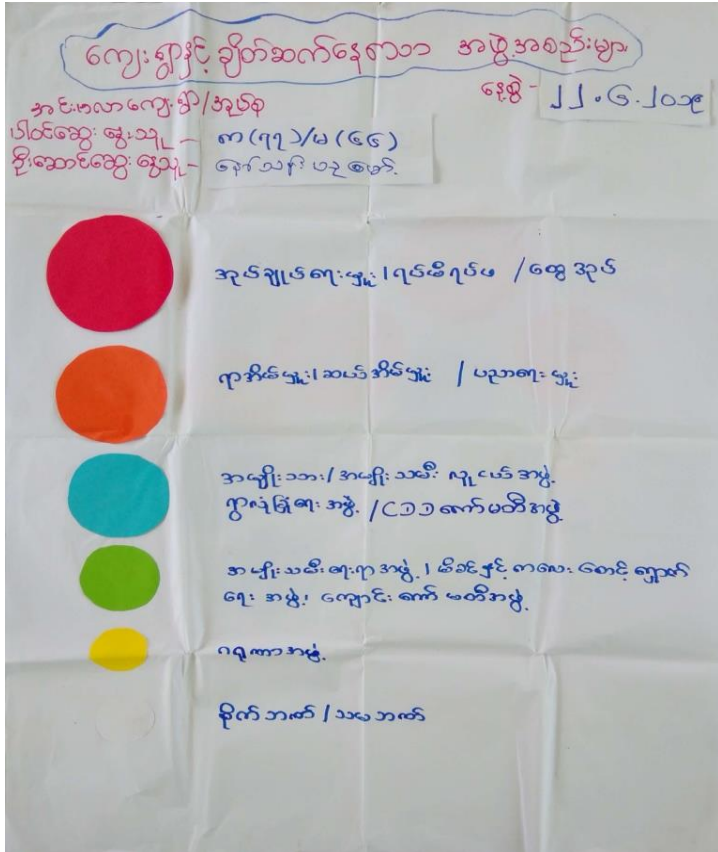 ကျေးရွာနှင့် ချိတ်ဆက်နေသော အဖွဲ့အစည်းများ
နေ့စွဲ - ၂၂.၆.၂၀၁၉
အင်းမလာကျေးရွာ/အုပ်စု
ပါဝင်ဆွေးနွေးသူ - ကျ (၇၇)/မ (၄၄)
ဦးဆောင်ဆွေးနွေးသူ - နော်သန်း
အုပ်ချုပ်ရေးမှူး၊ ရပ်မိရပ်ဖ / ထွေအုပ်
ရာအိမ်မှူး၊ ဆယ်အိမ်မှူး / ပညာရေးမှူး
အမျိုးသား/အမျိုးသမီး လူငယ်အဖွဲ့
ရွာလုံခြုံရေးအဖွဲ့ / CDD ကော်မတီအဖွဲ့
အမျိုးသမီးရေးရာအဖွဲ့ ၊ မိခင်နှင့် ကလေး စောင့်ရှောက်
ရေးအဖွဲ့၊ ကျောင်းကော်မတီအဖွဲ့
ဂရုဏာအဖွဲ့
စိုက်ဘဏ် / သမဘဏ်